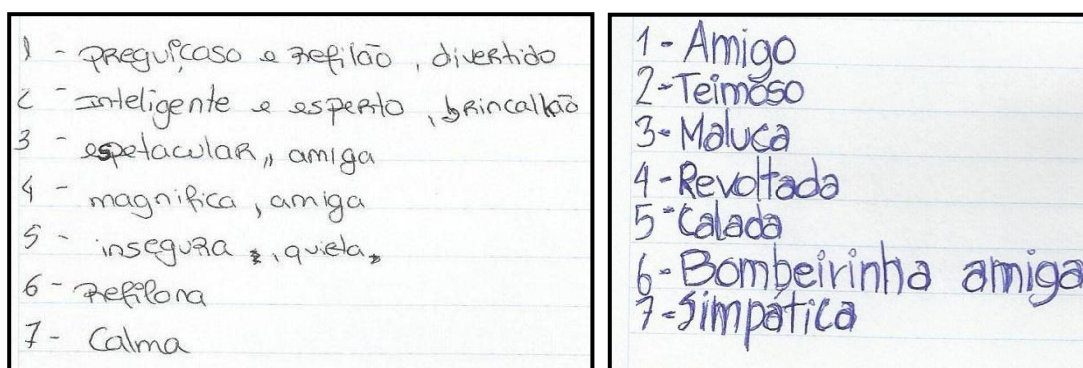 1 - preguiçaso e refilão, divertido
2 - Inteligente e esperto, brincalhão
3 - espetacular,, amiga
4 - magnifica, amiga
5 - insegura, quieta,
6 - Refilona
7 - Calma
1- Amigo
2- Teimoso
3- Maluca
4- Revoltada
5- Calada
6- Bombeirinha amiga
7- Simpática